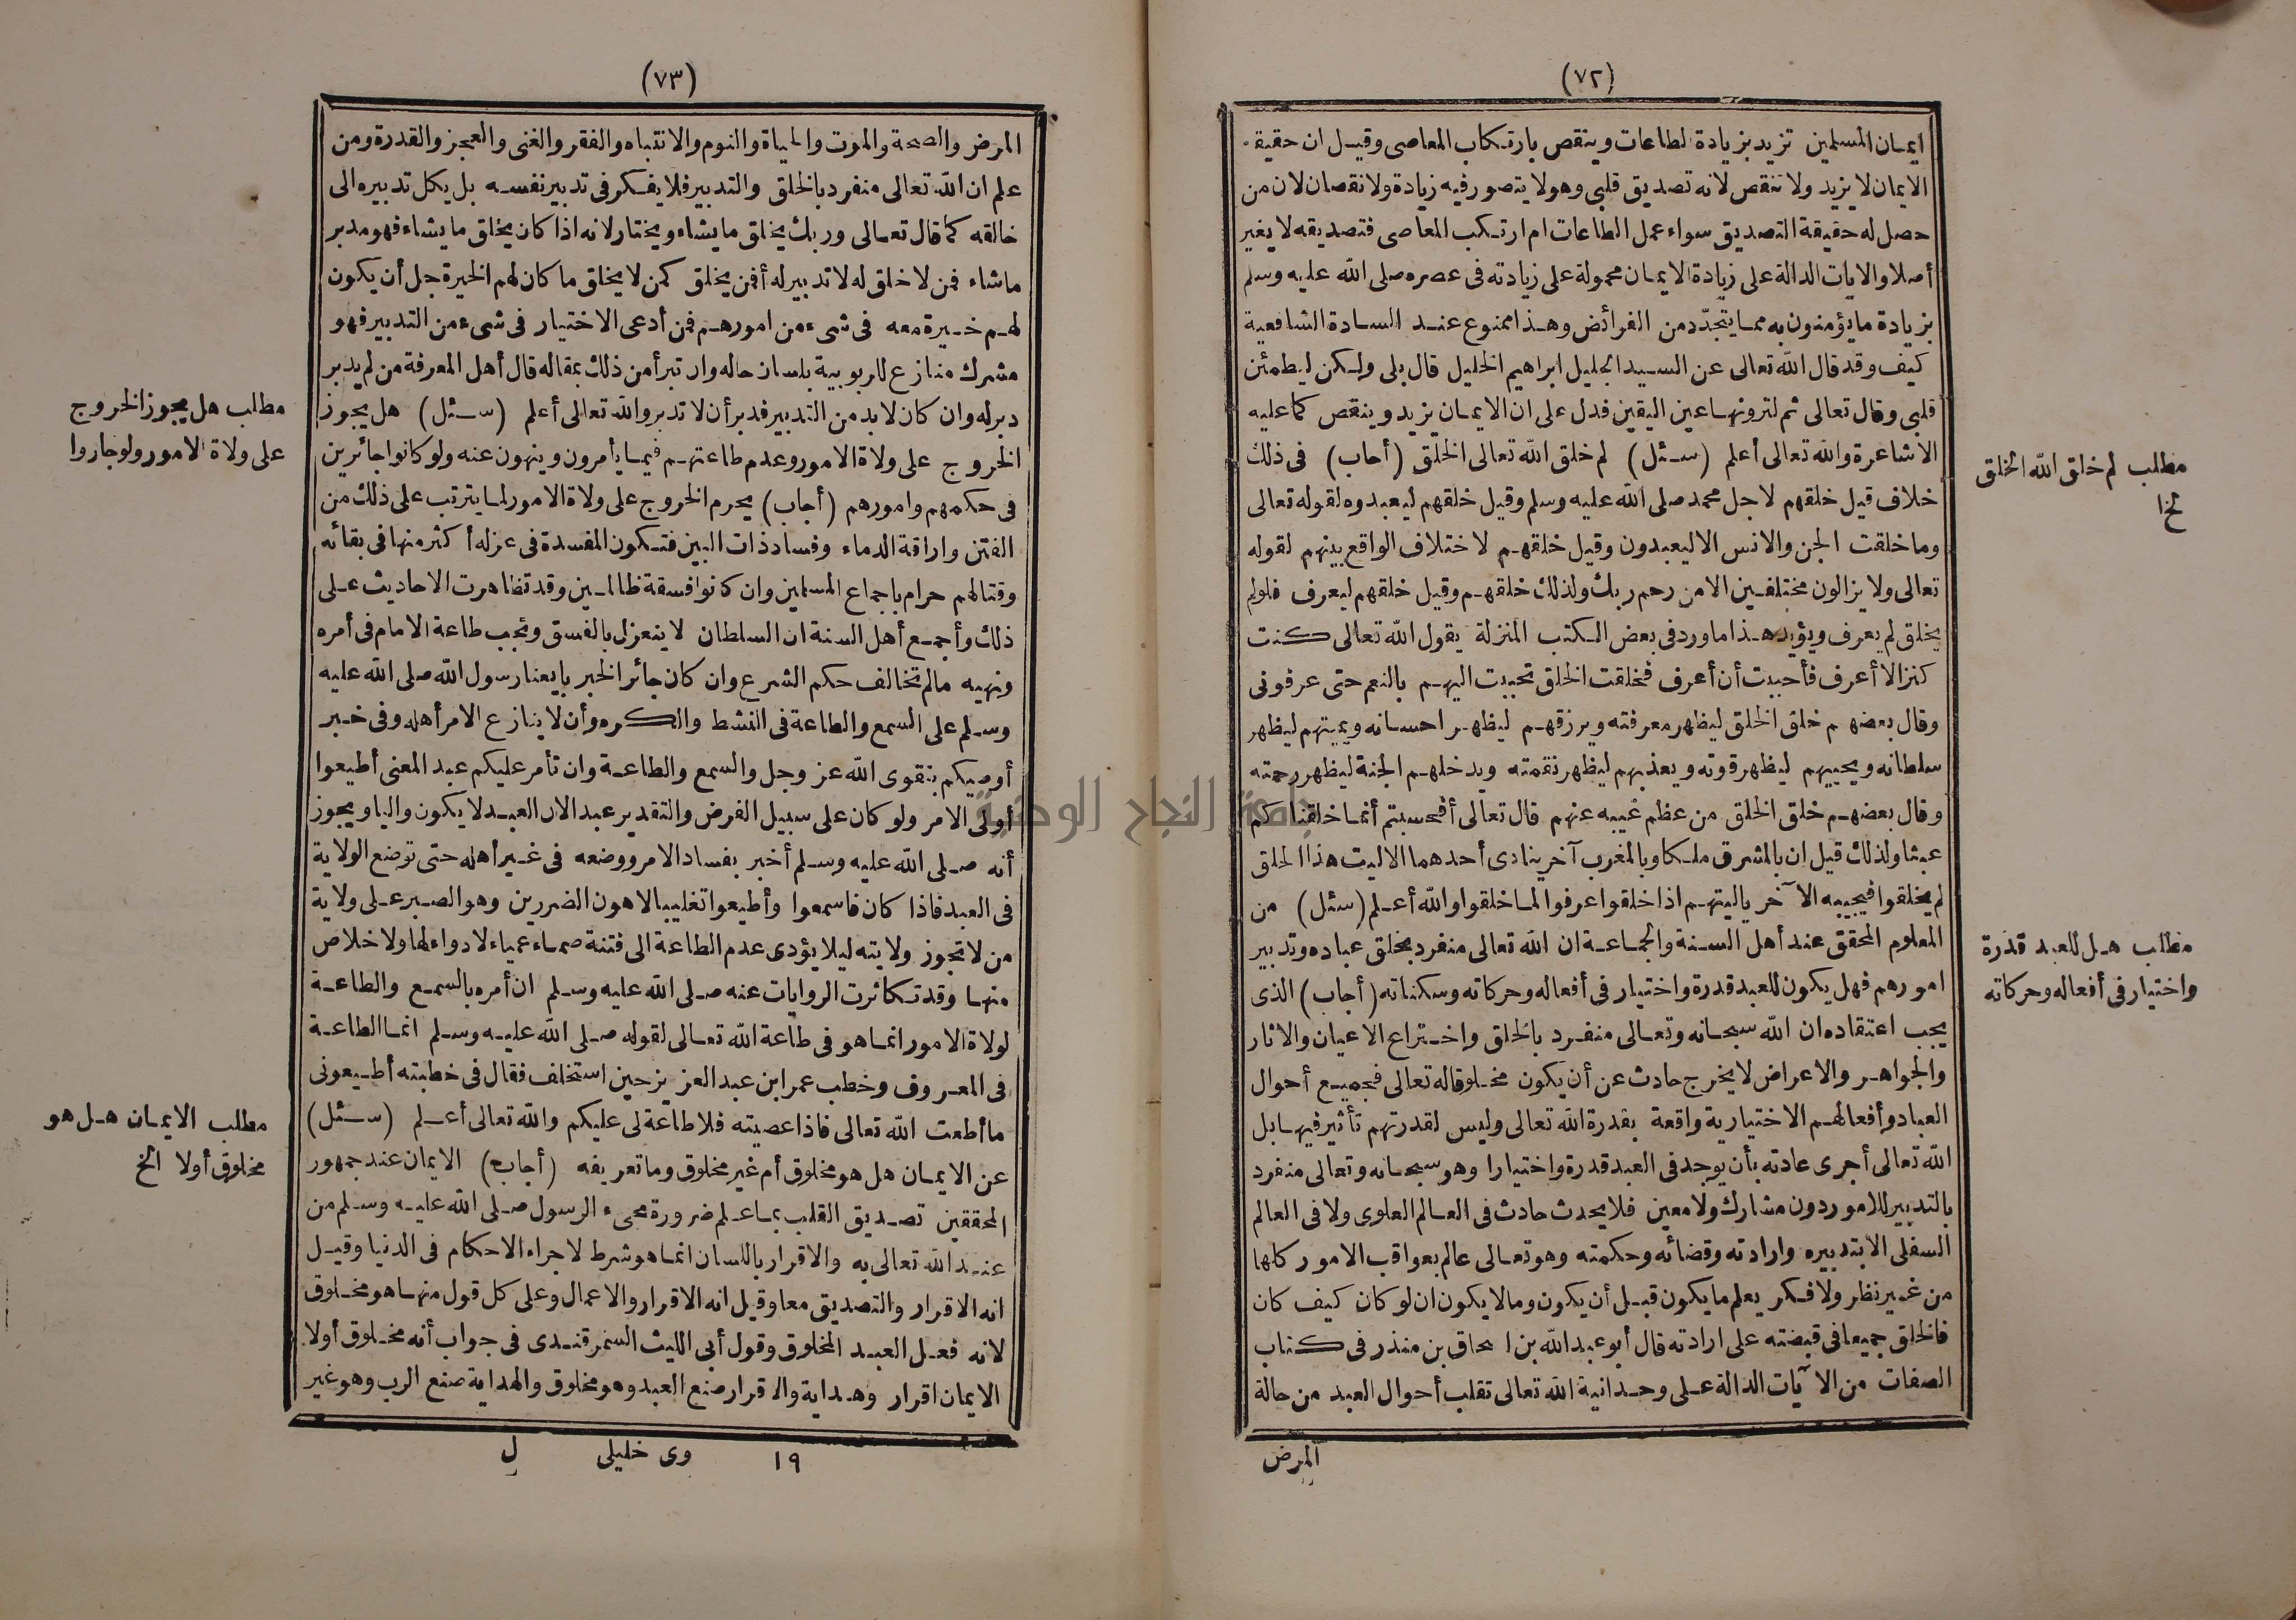 (٧٢)
ايمان المسلمين تزيد بزيادة الطاعات وينقص بارتكاب المعاصى وقيل ان حقيقة
الايمان لا يزيد ولا تنقص لانه تصديق قلبى وهو لا يتصور فيه زيادة ولا نقصان لان من
حصل له حقيقة التصديق سواء عمل الطاعات ام ارتكب المعاصى فتصديقه لا يغير
أصلا والايات الدالة على زيادة الايمان محمولة على زيادته فى عصره صلى الله عليه وسلم
بزيادة ما يؤمنون به مما يتجدد من الفرائض وهذا ممنوع عند السادة الشافعية
كيف وقد قال الله تعالى عن السيد الجليل ابراهيم الخليل قال بلى ولكن ليطمئن
قلبى وقال تعالى ثم لترونها عين اليقين فدل على ان الايمان يزيد وينقص كما عليه
الاشاعرة والله تعالى أعلم (سئل) لم خلق الله تعالى الخلق (أجاب) فى ذلك
خلاف قيل خلقهم لاجل محمد صلى الله عليه وسلم وقيل خلقهم ليعبدوه لقوله تعالى
وما خلقت الجن والانس الا ليعبدون وقيل خلقهم لاختلاف الواقع بينهم لقوله
تعالى ولا يزالون مختلفين الا من رحم ربك ولذلك خلقهم وقيل خلقهم ليعرف فلو لم
يخلق لم يعرف ويؤيد هذا ما ورد فى بعض الكتب المنزلة يقول الله تعالى كنت
كنزا لا أعرف فأحببت أن أعرف فخلقت الخلق تحببت اليهم بالنعم حتى عرفونى
وقال بعضهم خلق الخلق ليظهر معرفته ويرزقهم ليظهر احسانه ويميتهم ليظهر
سلطانه ويحييهم ليظهر قوته ويعذبهم ليظهر نقمته ويدخلهم الجنة ليظهر رحمته
وقال بعضهم خلق الخلق من عظم غيبه عنهم قال تعالى أفحسبتم أنما خلقناكم
عبثا ولذلك قيل ان بالمشرق ملكا وبالمغرب آخر ينادى أحدهما الا ليت هذا الخلق
لم يخلقوا فيجيبه الآخر ياليتهم اذا خلقوا عرفوا لما خلقوا والله أعلم (سئل) من
المعلوم المحقق عند أهل السنة والجماعة ان الله تعالى منفرد بخلق عباده وتدبير
امورهم فهل يكون للعبد قدرة واختيار فى أفعاله وحركاته وسكناته (أجاب) الذى
يجب اعتقاده ان الله سبحانه وتعالى منفرد بالخلق واختراع الاعيان والاثار
والجواهر والاعراض لا يخرج حادث عن أن يكون مخلوقا له تعالى فجميع أحوال
العباد وأفعالهم الاختيارية واقعة بقدرة الله تعالى وليس لقدرتهم تأثير فيها بل
الله تعالى أجرى عادته بأن يوجد فى العبد قدرة واختيارا وهو سبحانه وتعالى منفرد
بالتدبير للامور دون مشارك ولا معين فلا يحدث حادث فى العالم العلوى ولا فى العالم
السفلى الا بتدبيره وارادته وقضائه وحكمته وهو تعالى عالم بعواقب الامور كلها
من غير نظر ولا فكر يعلم ما يكون قبل أن يكون وما لا يكون ان لو كان كيف كان
فالخلق جميعا فى قبضته على ارادته قال أبو عبد الله بن اسحاق بن منذر فى كتاب
الصفات من الآيات الدالة على وحدانية الله تعالى تقلب أحوال العبد من حالة
المرض
مطلب لم خلق الله الخلق
الخ
مطلب هل للعبد قدرة
واختيار فى أفعاله وحركاته
(٧٣)
المرض والصحة والموت والحياة والنوم والانتباه والفقر والغنى والعجز والقدرة ومن
علم ان الله تعالى منفرد بالخلق والتدبير فلا يفكر فى تدبير نفسه بل يكل تدبيره الى
خالقه كما قال تعالى وربك يخلق ما يشاء ويختار لانه اذا كان يخلق ما يشاء فهو مدبر
ما شاء فمن لا خلق له لا تدبير له أفمن يخلق كمن لا يخلق ما كان لهم الخيرة جل أن يكون
لهم خيرة معه فى شىء من امورهم فمن أدعى الاختيار فى شىء من التدبير فهو
مشرك منازع للربوبية بلسان حاله وان تبرأ من ذلك بمقاله قال أهل المعرفة من لم يدبر
دبر له وان كان لا بد من التدبير فدبر أن لا تدبر والله تعالى أعلم (سئل) هل يجوز
الخروج على ولاة الامور وعدم طاعتهم فيما يأمرون وينهون عنه ولو كانوا جائرين
فى حكمهم وامورهم (أجاب) يحرم الخروج على ولاة الامور لما يترتب على ذلك من
الفتن واراقة الدماء وفساد ذات البين فتكون المفسدة فى عزله أكثر منها فى بقائه
وقتالهم حرام باجماع المسلمين وان كانوا فسقة ظالمين وقد تظاهرت الاحاديث على
ذلك وأجمع أهل السنة ان السلطان لا ينعزل بالفسق وتجب طاعة الامام فى أمره
ونهيه مالم تخالف حكم الشرع وان كان جائر الخبر بايعنا رسول الله صلى الله عليه
وسلم على السمع والطاعة فى النشط والكره وأن لا ينازع الامر أهله وفى خبر
أوصيكم بتقوى الله عز وجل والسمع والطاعة وان تأمر عليكم عبد المعنى أطيعوا
أولى الامر ولو كان على سبيل الفرض والتقدير عبد الان العبد لا يكون واليا ويجوز
أنه صلى الله عليه وسلم أخبر بفساد الامر ووضعه فى غير أهله حتى توضع الولاية
فى العبد فاذا كان فاسمعوا وأطيعوا تغليبا لاهون الضررين وهو الصبر على ولاية
من لا تجوز ولايته ليلا يؤدى عدم الطاعة الى فتنة صماء عمياء لا دواء لها ولا خلاص
منها وقد تكاثرت الروايات عنه صلى الله عليه وسلم ان أمره بالسمع والطاعة
لولاة الامور انما هو فى طاعة الله تعالى لقوله صلى الله عليه وسلم انما الطاعة
فى المعروف وخطب عمر ابن عبد العزيز حين استخلف فقال فى خطبته أطيعونى
ما أطعت الله تعالى فاذا عصيته فلا طاعة لى عليكم والله تعالى أعلم (سئل)
عن الايمان هل هو مخلوق أم غير مخلوق وما تعريفه (أجاب) الايمان عند جمهور
المحققين تصديق القلب بما علم ضرورة مجىء الرسول صلى الله عليه وسلم من
عند الله تعالى به والاقرار باللسان انما هو شرط لاجراء الاحكام فى الدنيا وقيل
انه الاقرار والتصديق معا وقيل انه الاقرار والاعمال وعلى كل قول منها هو مخلوق
لانه فعل العبد المخلوق وقول أبى الليث السمرقندى فى جواب أنه مخلوق أولا
الايمان اقرار وهداية والاقرار صنع العبد وهو مخلوق والهداية صنع الرب وهو غير
١٩ وى خليلى ل
مطلب هل يجوز الخروج
على ولاة الامور ولو جاروا
مطلب الايمان هل هو
مخلوق أولا الخ
جامعة النجاح الوطنية